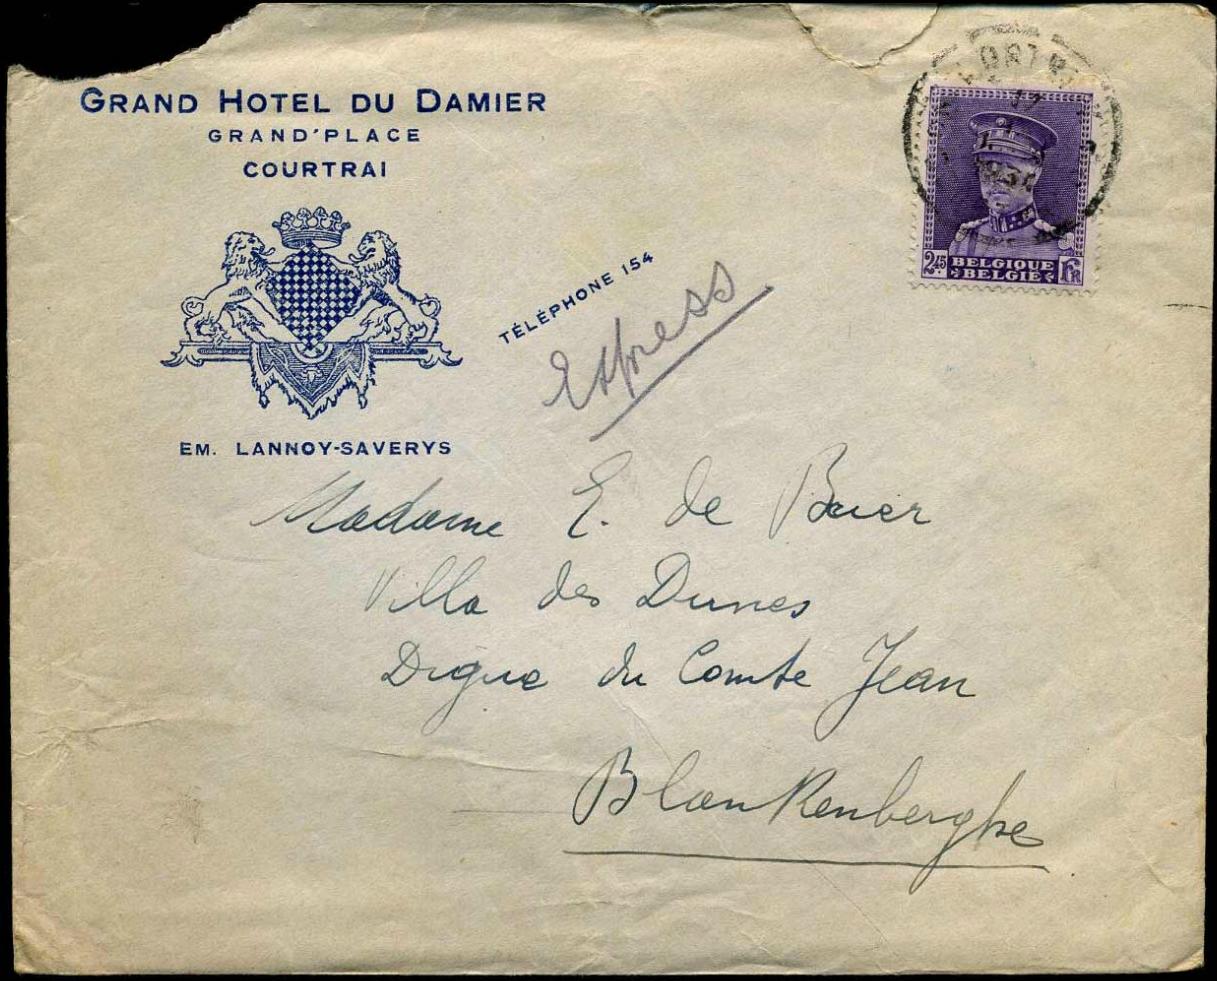 GRAND HOTEL DU DAMIER
GRAND'PLACE
COURTRAI
TÉLÉPHONE 154
EM. LANNOY-SAVERYS
Express
2.45 BELGIQUE FR
BELGIË
Madame E. de
Villa des Dunes
Digue du Comte Jean
Blankenberghe